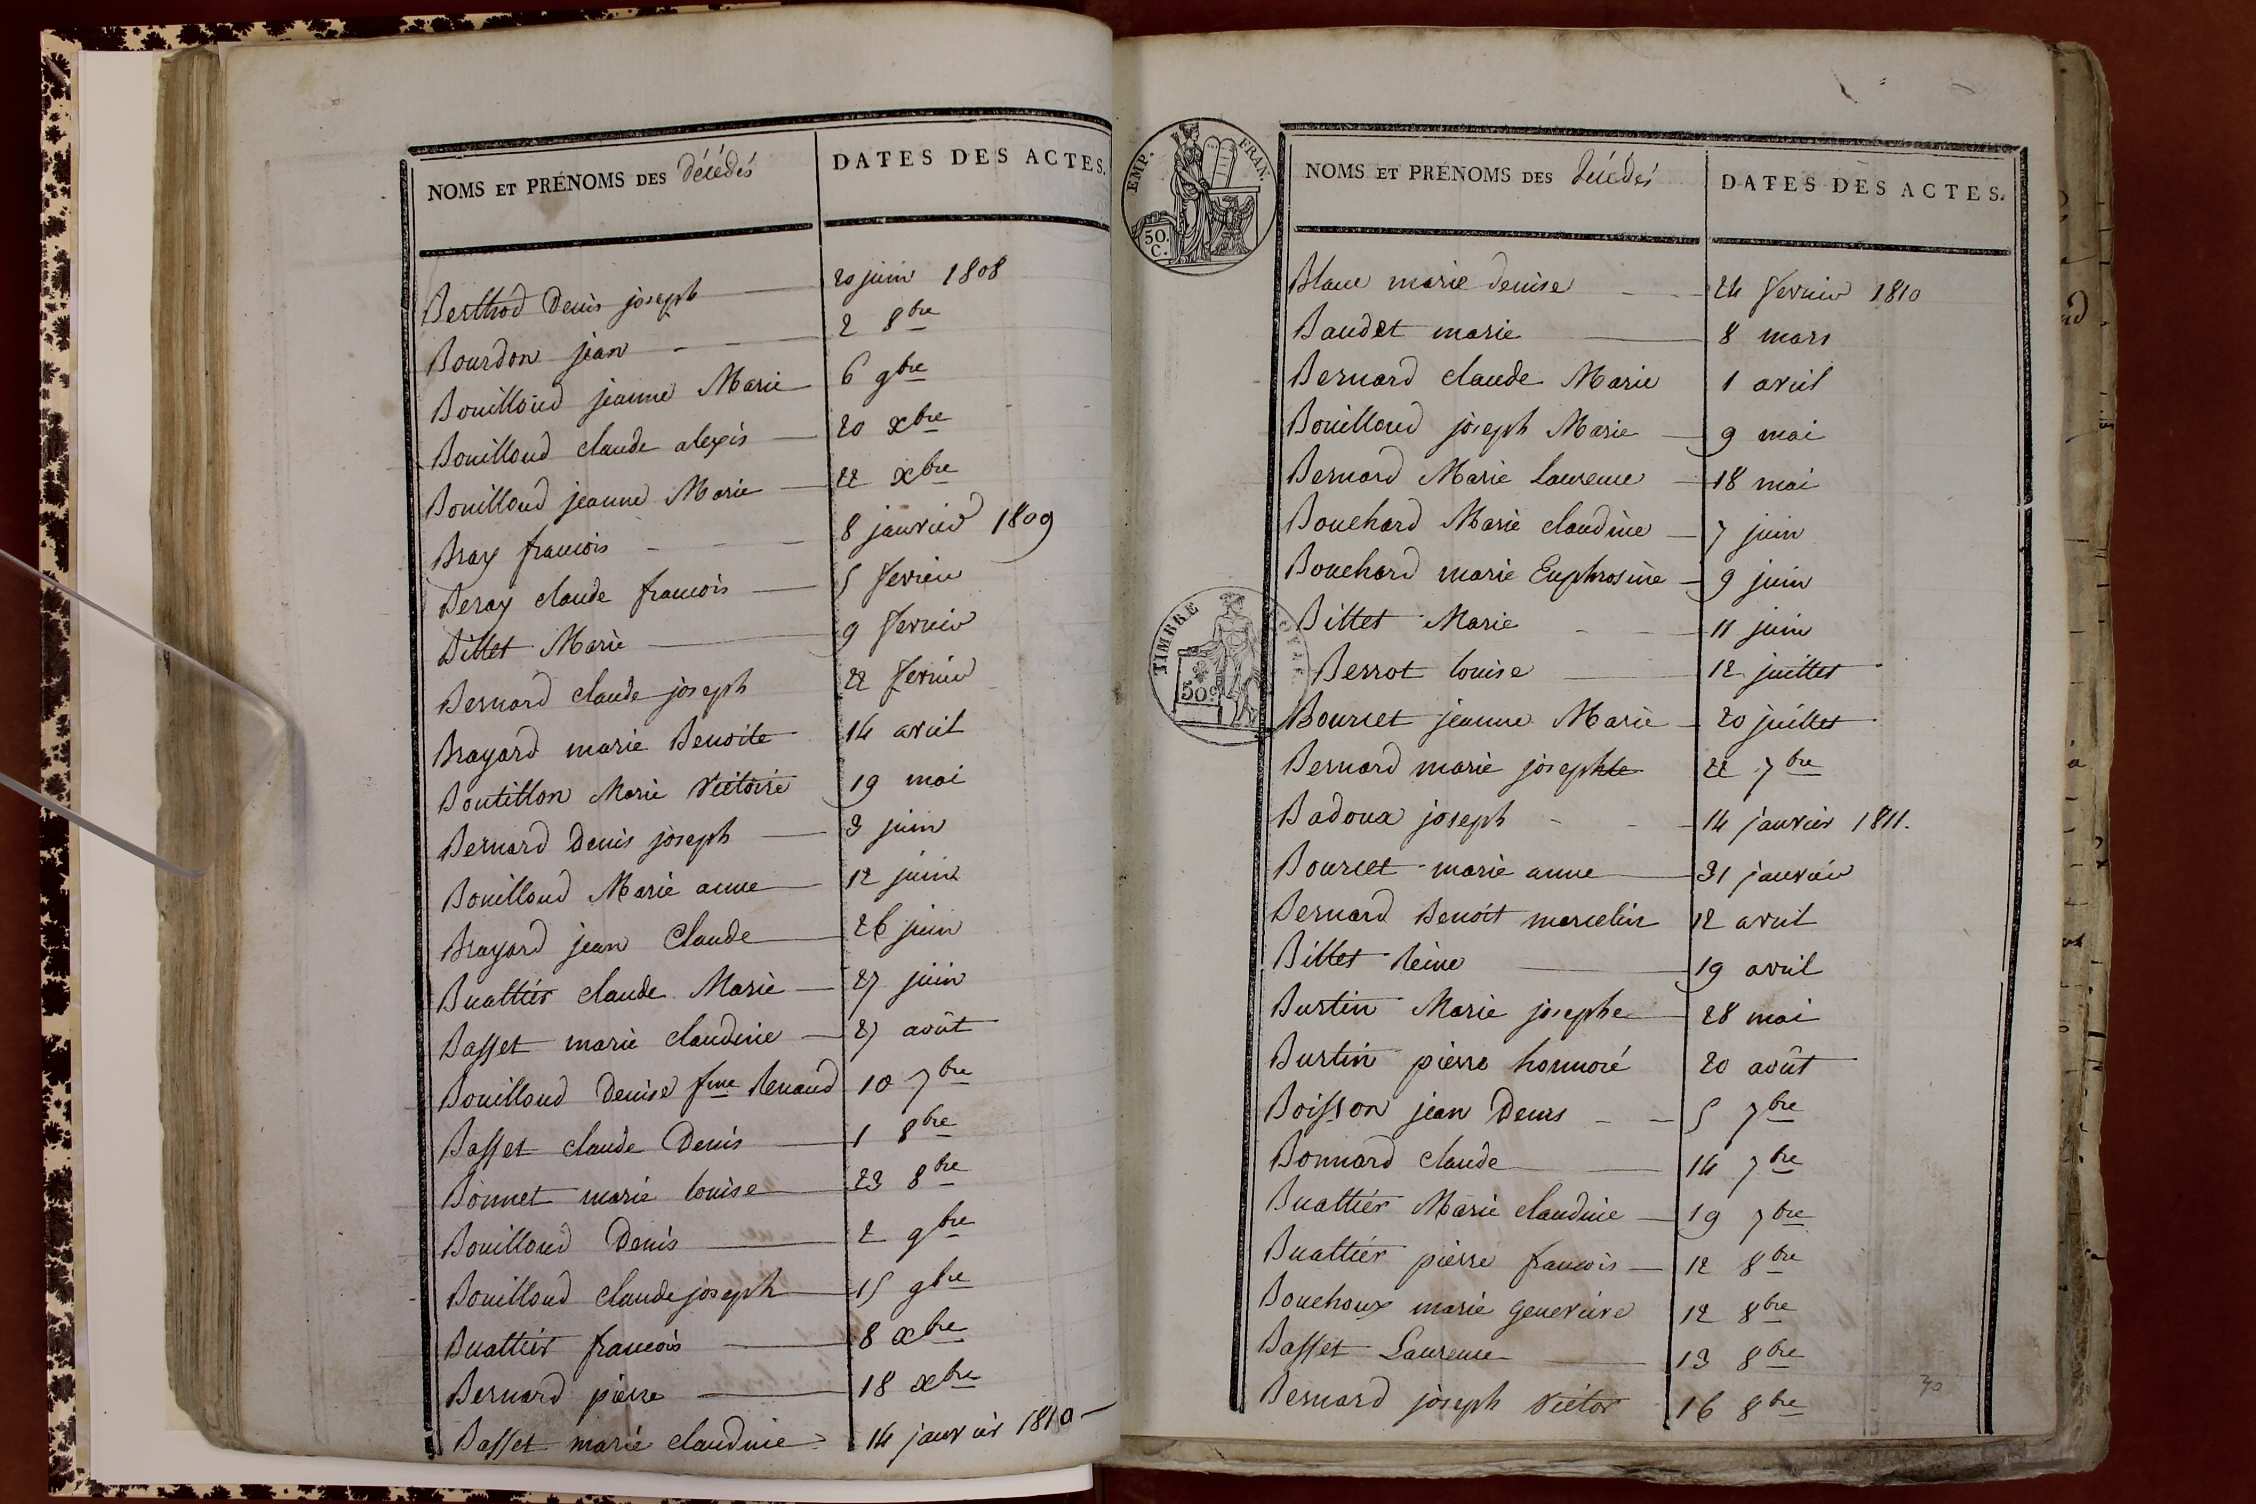 NOMS ET PRÉNOMS DES décédés DATES DES ACTES.
Berthod Denis joseph 20 juin 1808
Bourdon jean 2 8bre
Bouilloud jeanne Marie 6 9bre
Bouilloud claude alexis 20 xbre
Bouilloud jeanne Marie 22 xbre
Bray francois 8 janvier 1809
Beray claude francois 5 fevrier
Billet Marie 9 fevrier
Bernard claude joseph 22 fevrier
Brayard marie Benoite 14 avril
Boutillon Marie Victoire 19 mai
Bernard Denis joseph 3 juin
Bouilloud Marie anne 12 juin
Brayard jean Claude 26 juin
Buattier claude Marie 27 juin
Basset marie claudine 27 août
Bouilloud Denise fme Renaud 10 7bre
Basset claude Denis 1 8bre
Bonnet marie louise 23 8bre
Bouilloud Denis 2 9bre
Bouilloud claude joseph 15 9bre
Buattier francois 8 xbre
Bernard pierre 18 xbre
Basset marie claudine 14 janvier 1810
EMP. FRAN.
50.
C.
NOMS ET PRÉNOMS DES décédés DATES DES ACTES.
Blanc marie denise 24 fevrier 1810
Baudet marie 8 mars
Bernard claude Marie 1 avril
Bouilloud joseph Marie 9 mai
Bernard Marie Laurence 18 mai
Bouchard Marie claudine 7 juin
Bouchard marie Euphrosine 9 juin
TIMBRE
50c
Billet Marie 11 juin
Berrot louise 12 juillet
Bourcet jeanne Marie 20 juillet
Bernard marie josephte 22 7bre
Badoux joseph 14 janvier 1811.
Bourcet marie anne 31 janvier
Bernard Benoit marcelin 12 avril
Billet Reine 19 avril
Burtin Marie josephe 28 mai
Burtin pierre honnoré 20 août
Boisson jean Denis 5 7bre
Bonnard claude 14 7bre
Buattier Marie claudine 19 7bre
Buattier pierre francois 12 8bre
Bouchoux marie genevieve 12 8bre
Basset Laurence 13 8bre
Bernard joseph Victor 16 8bre